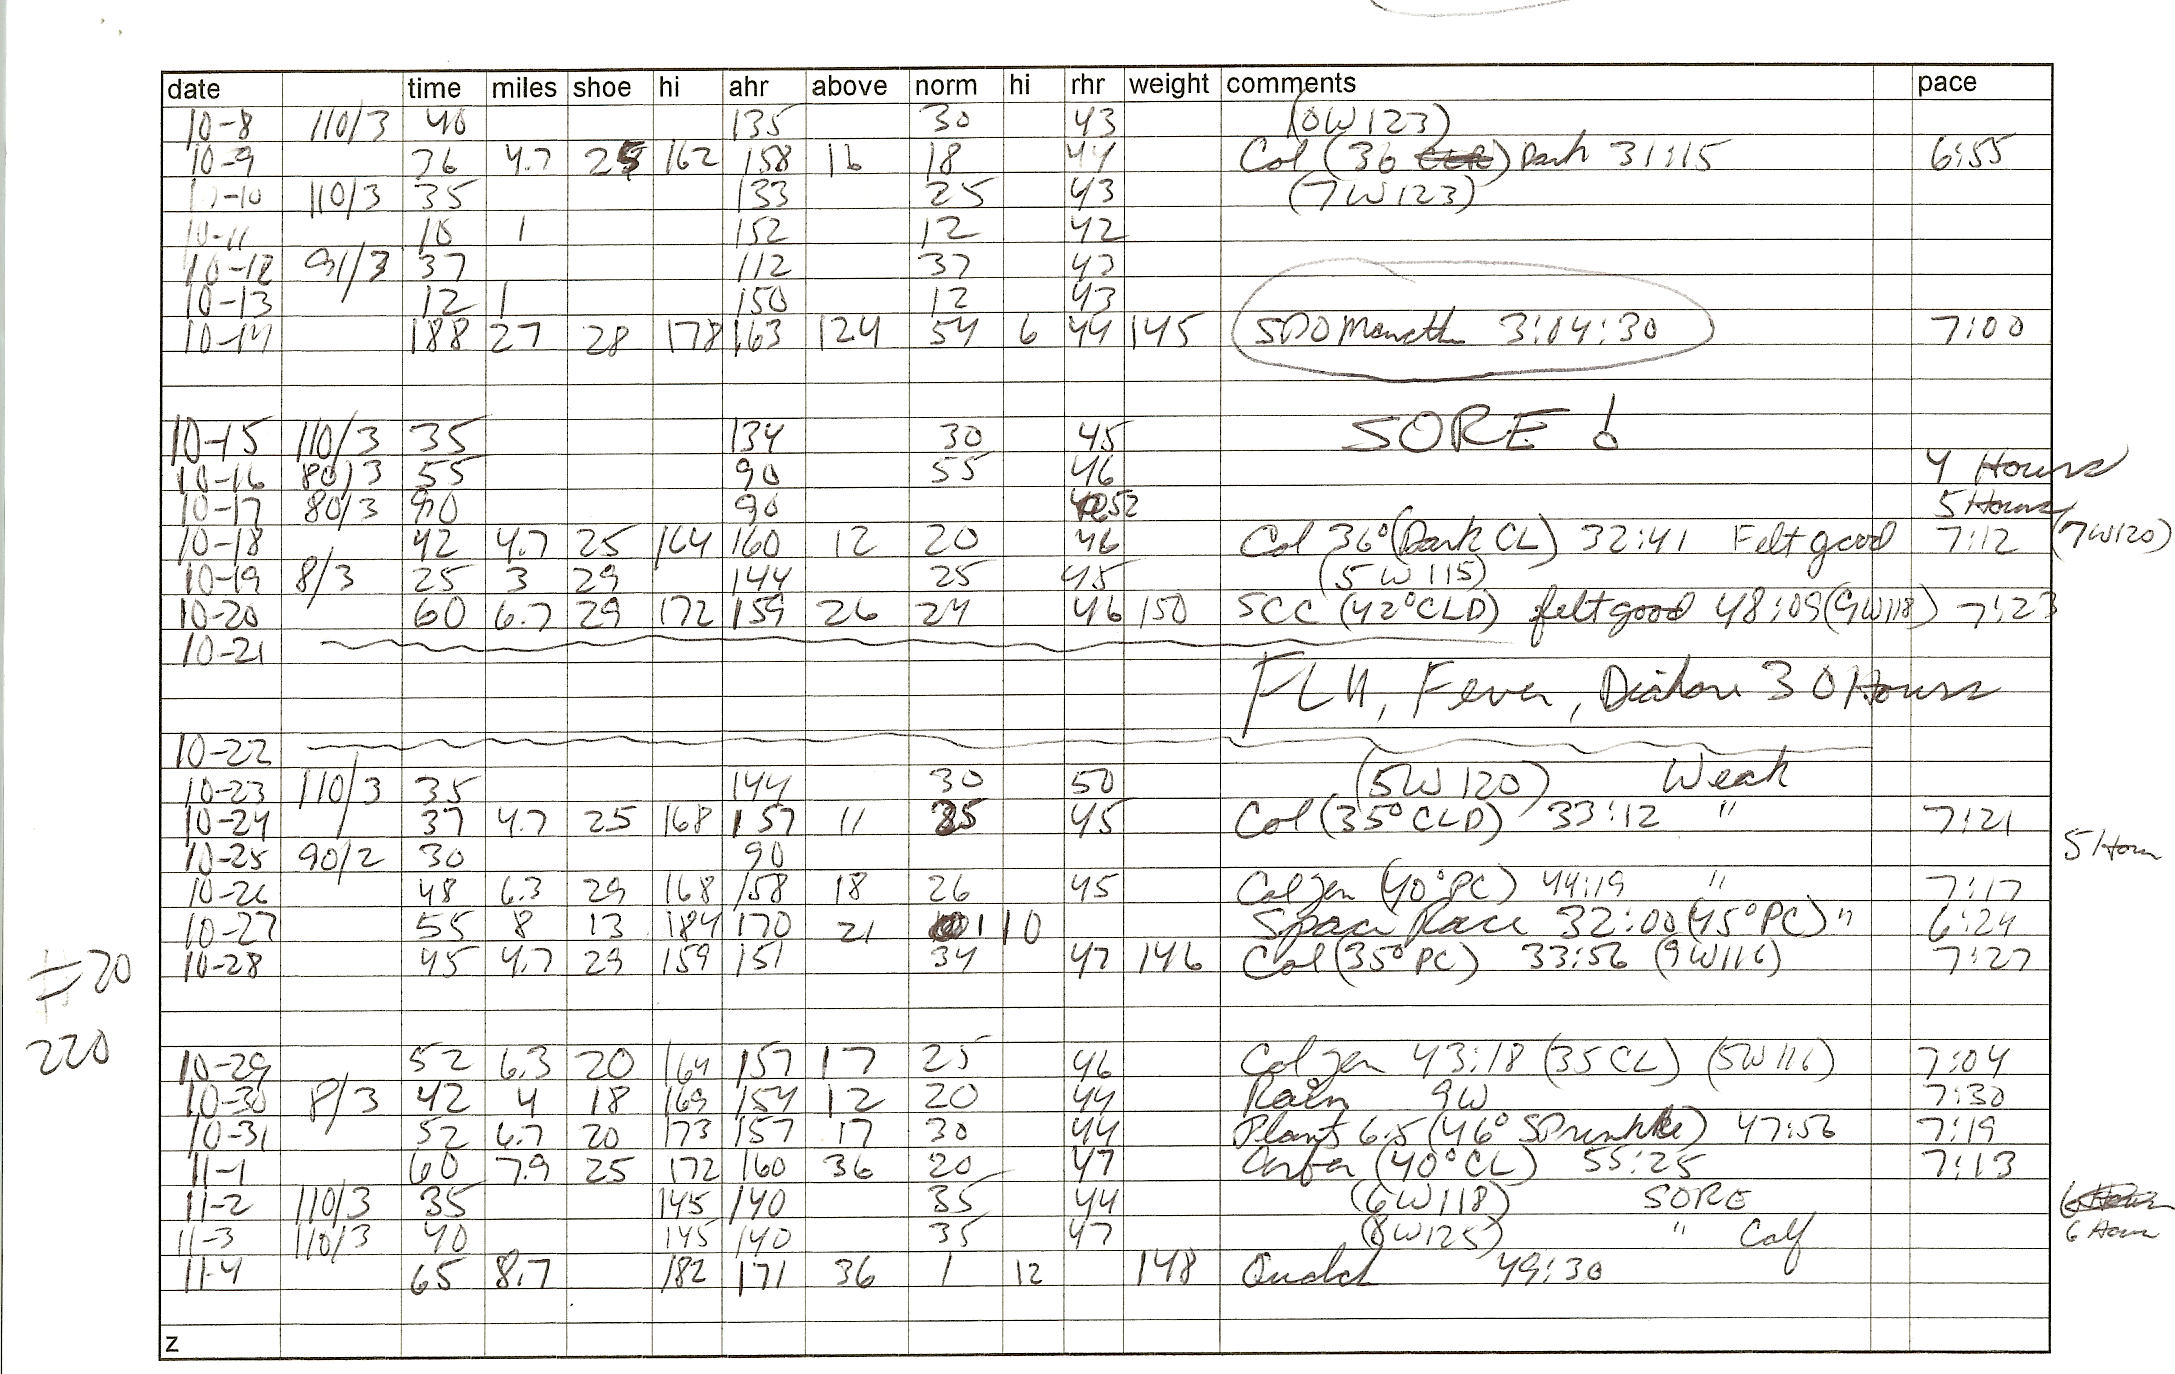 date time miles shoe hi ahr above norm hi rhr weight comments pace
10-8 110/3 40 135 30 43 (10W123)
10-9 36 4.7 25 162 158 16 18 44 Col (36 ) Dark 31:15 6:55
10-10 110/3 35 133 25 43 (7W123)
10-11 10 1 152 12 42
10-12 91/3 37 112 37 43
10-13 12 1 150 12 43
10-14 188 27 28 178 163 124 54 6 44 145 3:04:30 7:00
10-15 110/3 35 134 30 45 SORE!
10-16 80/3 55 90 55 46 4 Hours
10-17 80/3 90 90 52 5 Hours
10-18 42 4.7 25 164 160 12 20 46 Col 36° (Dark CL) 32:41 Felt good 7:12 (7W120)
10-19 8/3 25 3 29 144 25 45 (5W115)
10-20 60 6.7 29 172 159 26 24 46 150 SCC (42° CLD) felt good 48:09 (9W118) 7:23
10-21
FLU, Fever, 30 Hours
10-22
10-23 110/3 35 144 30 50 (5W120) Weak
10-24 37 4.7 25 168 157 11 25 45 Col (35° CLD) 33:12 " 7:21
10-25 90/2 30 90 5 Hour
10-26 48 6.3 29 168 158 18 26 45 Col Jen (40° PC) 44:19 " 7:17
10-27 55 8 13 184 170 21 1 10 Space Race 32:00 (45° PC) " 6:24
10-28 45 4.7 29 159 151 34 47 146 Col (35° PC) 33:56 (9W116) 7:27
#20
220
10-29 52 6.3 20 164 157 17 25 46 Col Jen 43:18 (35 CL) (5W116) 7:04
10-30 8/3 42 4 18 169 154 12 20 44 Rain 9W 7:30
10-31 52 6.7 20 173 157 17 30 44 Plant 6.5 (46° Sprinkle) 47:56 7:19
11-1 60 7.9 25 172 160 36 20 47 (40° CL) 55:25 7:13
11-2 110/3 35 145 140 35 44 (6W118) SORE
11-3 110/3 40 145 140 35 47 (8W125) " Calf 6 Hour
11-4 65 8.7 182 171 36 1 12 148 49:30
z